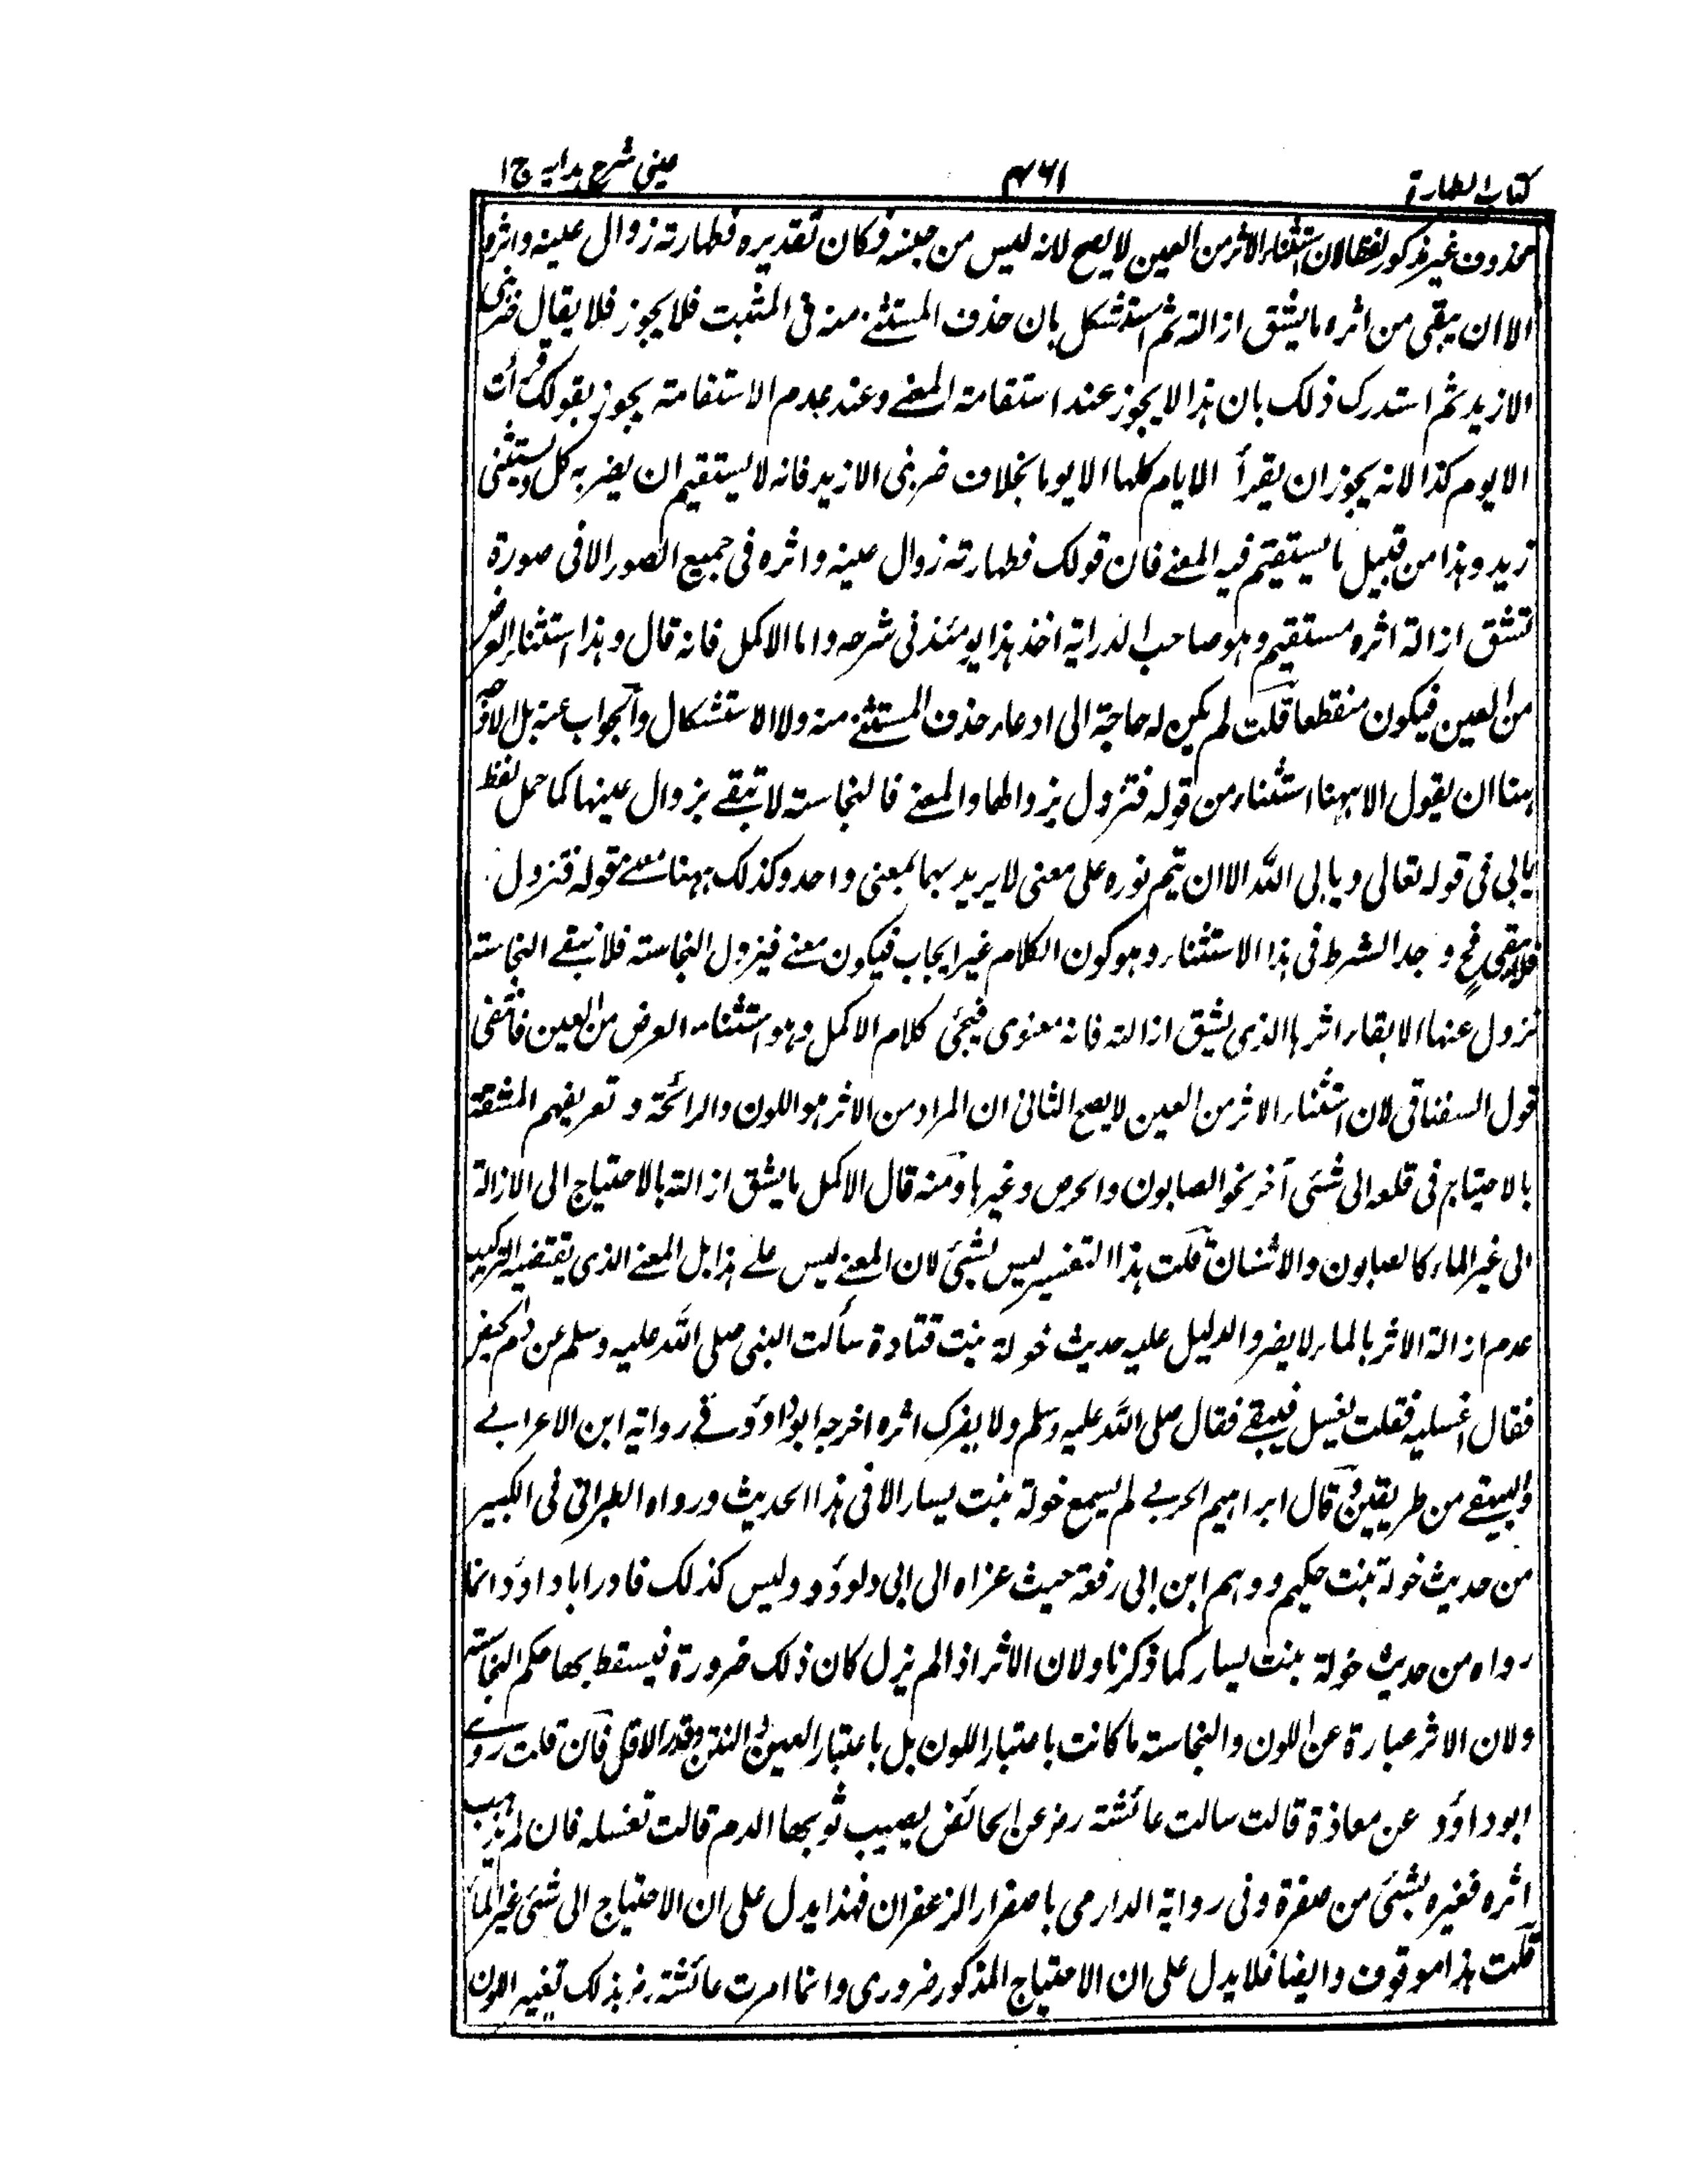 كتاب الطهارة
۴۶۱
عينى شرح هدايه ج۱
محذوف غير مذكور لفظا لان استثناء الاثر من العين لا يصح لانه ليس من جنسه فكان تقديره فطهارته زوال عينه واثره
الا ان يبقى من اثره ما يشق ازالته ثم استشكل بان حذف المستثنے منه فى المثبت فلا يجوز فلا يقال ضربنى
الا زيد ثم استدرك ذلك بان هذا لا يجوز عند استقامة المعنے وعند عدم الاستقامة يجوز بقولك قرأت
الا يوم كذا لانه يجوز ان يقرأ الايام كلها الا يوما بخلاف ضربنى الا زيد فانه لا يستقيم ان يضربه كل ويستثنى
زيد وهذا من قبيل ما يستقيم فيه المعنے فان قولك فطهارته زوال عينه واثره فى جميع الصور الا فى صورة
تشق ازالة اثره مستقيم وهو صاحب الدراية اخذ هذا يومئذ فى شرحه واما الاكمل فانه قال وهذا استثناء العرض
من العين فيكون منقطعا قلت لم يكن له حاجة الى ادعاء حذف المستثنے منه ولا الاستشكال والجواب عنه بل الاوجه
ههنا ان يقول الا ههنا استثناء من قوله فتزول بزوالها والمعنے فالنجاسته لا تبقے بزوال عينها كما حمل لفظ
يابى فى قوله تعالى ويابى الله الا ان يتم نوره على معنى لا يريد سيما بمعنى واحد وكذلك ههنا معنے قوله فتزول
فلا يبقى فح وجد الشرط فى هذا الاستثناء وهو كون الكلام غير ايجاب فيكون معنے فيزول النجاسته فلا تبقے النجاسته
تزول عنها الا بقاء اثرها الذى يشق ازالته فانه معنوى فيجئ كلام الاكمل وهو استثناء العرض من العين فانتفى
قول السغناقى لان استثناء الاثر من العين لا يصح الثانى ان المراد من الاثر هو اللون والرائحة وتعريفهم المشقة
بالاحتياج فى قلعه الى شئ آخر نحو الصابون والحرض وغيرها ومنه قال الاكمل ما يشق ازالته بالاحتياج الى الازالة
الى غير الماء كالصابون والاشنان قلت هذا التفسير ليس بشئ لان المعنے ليس علے هذا بل المعنے الذى يقتضيه التركيب
عدم ازالة الاثر بالماء لا يضر والدليل عليه حديث خولة بنت قتادة سألت النبى صلى الله عليه وسلم عن دم الحيض
فقال اغسليه فقلت يغسل فيبقے فقال صلى الله عليه وسلم ولا يضرك اثره اخرجه ابو داوُد فے رواية ابن الاعرابے
والبيهقے من طريقين وقال ابراهيم الحربے لم يسمع خولة بنت يسار الا فى هذا الحديث ورواه الطبرانى فى الكبير
من حديث خولة بنت حكيم ووهم ابن ابى رفعة حيث عزاه الى ابى داوُد وليس كذلك فاورا ابا داوُد انما
رواه من حديث خولة بنت يسار كما ذكرنا ولان الاثر اذا لم يزل كان ذلك ضرورة فيسقط بها حكم النجاسته
ولان الاثر عبارة عن اللون والنجاسته ما كانت باعتبار اللون بل باعتبار العين والنتن وقدر الاقل فان قلت روے
ابو داوُد عن معاذة قالت سالت عائشة رض عن الحائض يصيب ثوبها الدم قالت تغسله فان لم يذهب
اثره فغيره بشئ من صفرة وفى رواية الدارمى باصفرار الزعفران فهذا يدل على ان الاحتياج الى شئ غير الماء
قلت هذا موقوف وايضا فلا يدل على ان الاحتياج المذكور ضرورى وانما امرت عائشة رض بذلك تغيير اللون